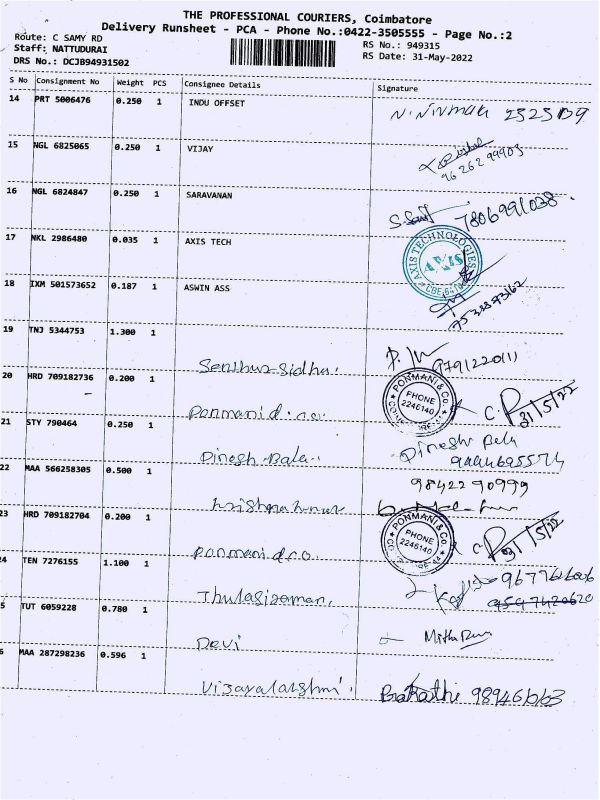 THE PROFESSIONAL COURIERS, Coimbatore
Delivery Runsheet - PCA - Phone No.:0422-3505555 - Page No.:2
Route: C SAMY RD
Staff: NATTUDURAI
DRS No.: DCJB94931502
RS No.: 949315
RS Date: 31-May-2022
S No Consignment No Weight PCS Consignee Details Signature
14 PRT 5006476 0.250 1 INDU OFFSET
15 NGL 6825065 0.250 1 VIJAY
96262 99903
16 NGL 6824847 0.250 1 SARAVANAN
7806991038
17 NKL 2986480 0.035 1 AXIS TECH
AXIS TECHNOLOGIES
AXIS
18 IXM 501573652 0.187 1 ASWIN ASS
19 TNJ 5344753 1.300 1 Senthur Sidhu.
20 HRD 709182736 0.200 1 Ponmani d. co.
PONMANI & CO.
PHONE
2246140
31/5/22
21 STY 790464 0.250 1 Dinesh Bala. Dinesh Bala
22 MAA 566258305 0.500 1 98422 90999
23 HRD 709182704 0.200 1 Ponmani d. co.
PONMANI & CO.
PHONE
2246140
31/5/22
24 TEN 7276155 1.100 1 Thulasiraman.
5 TUT 6059228 0.780 1 Devi
6 MAA 287298236 0.596 1 Vijayalakshmi.